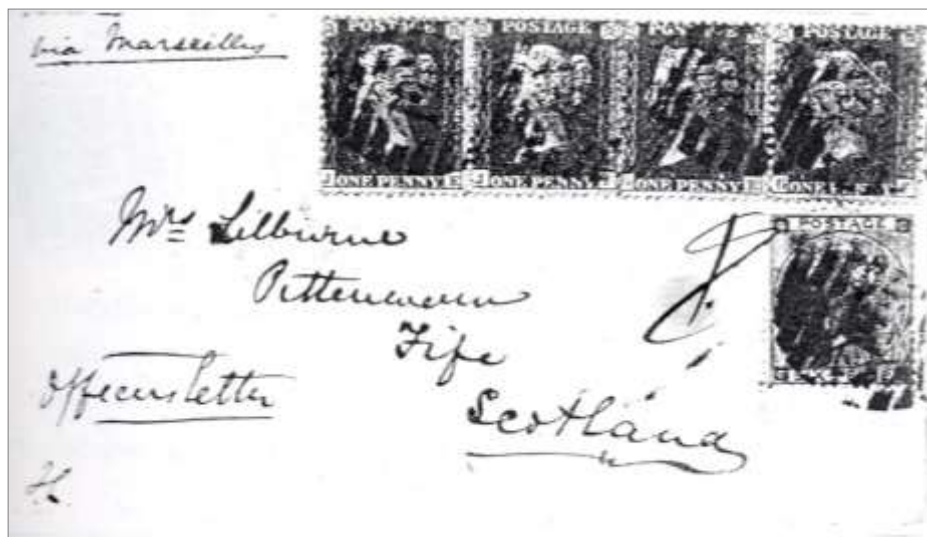 via Marseilles
POSTAGE
POSTAGE
ONE PENNY
ONE PENNY
ONE PENNY
POSTAGE
Mrs Lilburne
Pittenweem
Fife
Scotland
Officers Letter